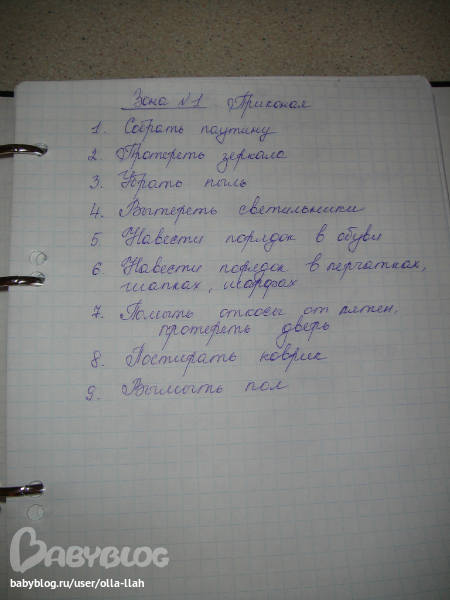 Зона №1 Прихожая
1. Собрать паутину
2. Протереть зеркала
3. Убрать пыль
4. Вытереть светильники
5. Навести порядок в обуви
6. Навести порядок в перчатках,
шапках, шарфах
7. Помыть откосы от пятен,
протереть дверь
8. Постирать коврик
9. Вымыть пол
BABYBLOG
babyblog.ru/user/olla-llah